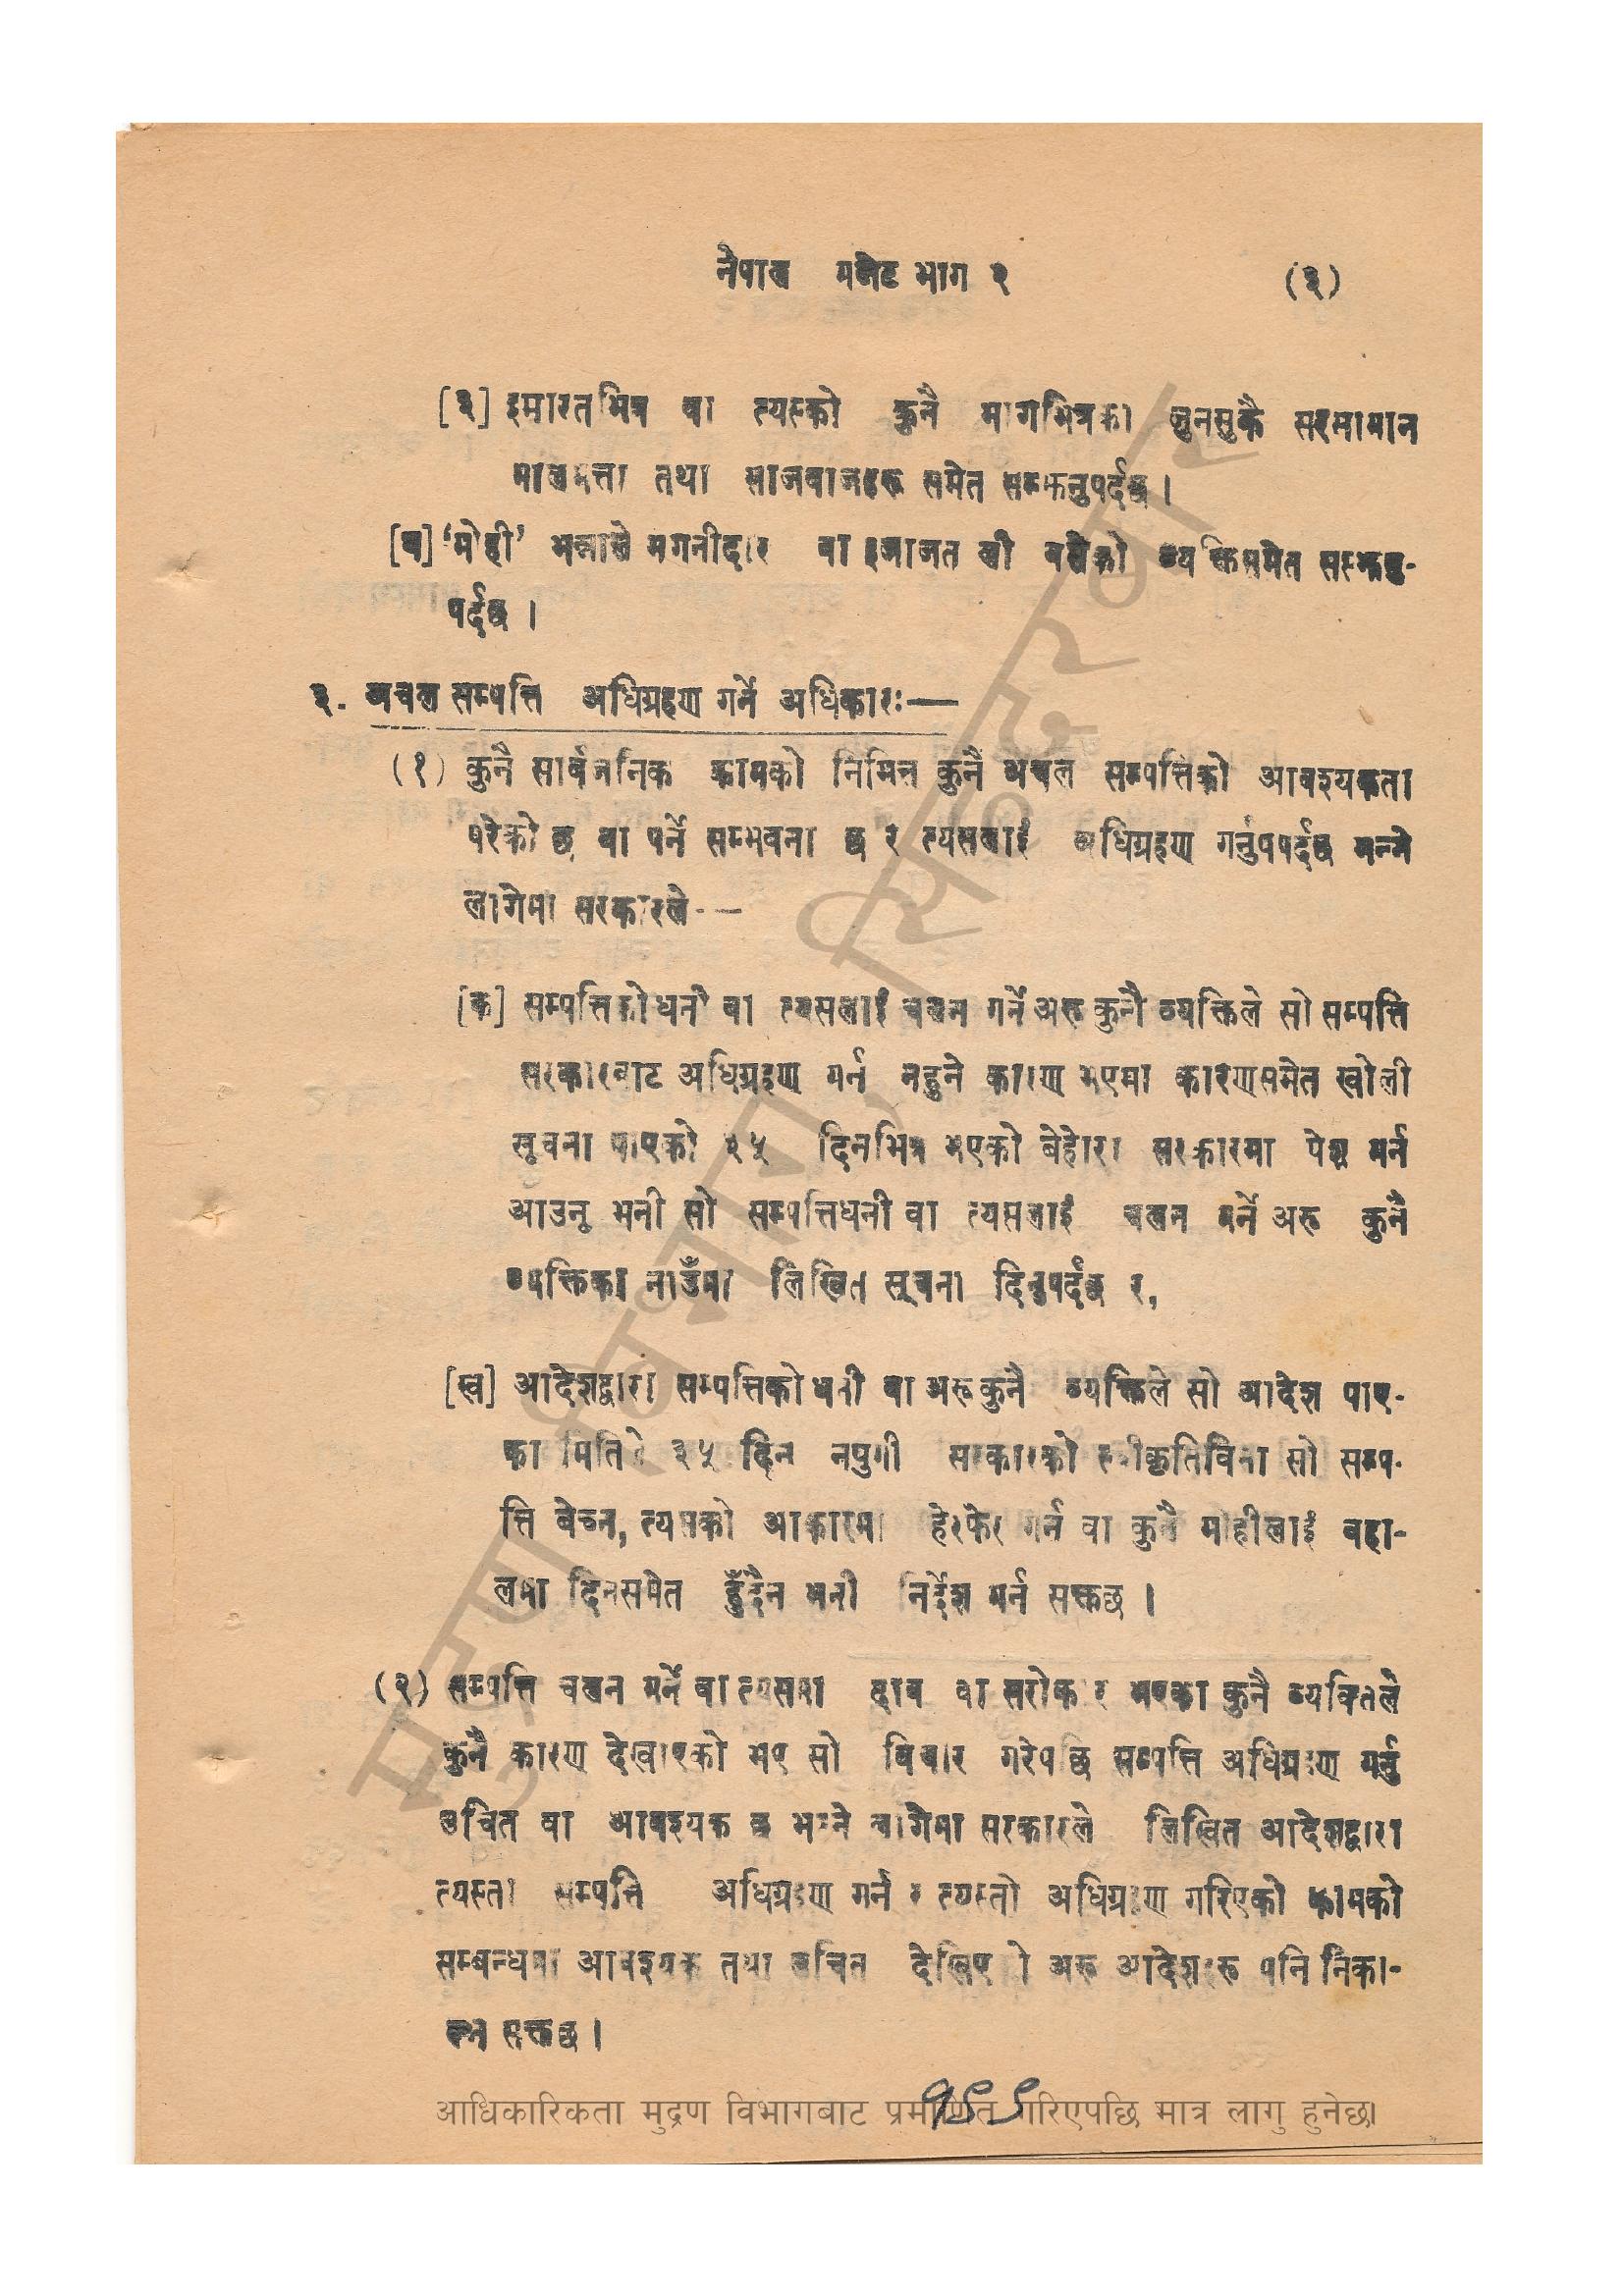 नेपाल गजेट भाग २ (३)
[३] इमारतभित्र वा त्यस्को कुनै भागभित्रका जुनसुकै सरसामान
मालमत्ता तथा साजबाजहरू समेत सम्झनुपर्दछ ।
[घ] 'मोही' भन्नाले मगनीदार वा इजाजत ली बसेको व्यक्तिसमेत सम्झनु-
पर्दछ ।
३. अचल सम्पत्ति अधिग्रहण गर्ने अधिकारः—
(१) कुनै सार्वजनिक कामको निमित्त कुनै अचल सम्पत्तिको आवश्यकता
परेको छ वा पर्ने सम्भवना छ र त्यसलाई अधिग्रहण गर्नुपपर्दछ भन्ने
लागेमा सरकारले—
[क] सम्पत्तिको धनी वा त्यसलाई चलन गर्ने अरू कुनै व्यक्तिले सो सम्पत्ति
सरकारबाट अधिग्रहण गर्न नहुने कारण भएमा कारणसमेत खोली
सूचना पाएको ३५ दिनभित्र भएको बेहोरा सरकारमा पेश गर्न
आउनू भनी सो सम्पत्तिधनी वा त्यसलाई चलन गर्ने अरू कुनै
व्यक्तिका नाउँमा लिखित सूचना दिनुपर्दछ र,
[ख] आदेशद्वारा सम्पत्तिको धनी वा अरू कुनै व्यक्तिले सो आदेश पाए-
का मितिले ३५ दिन नपुगी सरकारको स्वीकृतिविना सो सम्प-
त्ति बेच्न, त्यसको आकारमा हेरफेर गर्न वा कुनै मोहीलाई बहा-
लमा दिनसमेत हुँदैन भनी निर्देश गर्न सक्तछ ।
(२) सम्पत्ति चलन गर्ने वा त्यसमा हाव वा सरोकार भएका कुनै व्यक्तिले
कुनै कारण देखाएको भए सो विचार गरेपछि सम्पत्ति अधिग्रहण गर्नु
उचित वा आवश्यक छ भन्ने लागेमा सरकारले लिखित आदेशद्वारा
त्यस्ता सम्पत्ति अधिग्रहण गर्न र त्यस्तो अधिग्रहण गरिएको कामको
सम्बन्धमा आवश्यक तथा उचित देखिएको अरू आदेशहरू पनि निका-
ल्न सक्तछ ।
१८८
मुद्रण विभाग, सिंहदरबार
आधिकारिकता मुद्रण विभागबाट प्रमाणित गरिएपछि मात्र लागु हुनेछ।